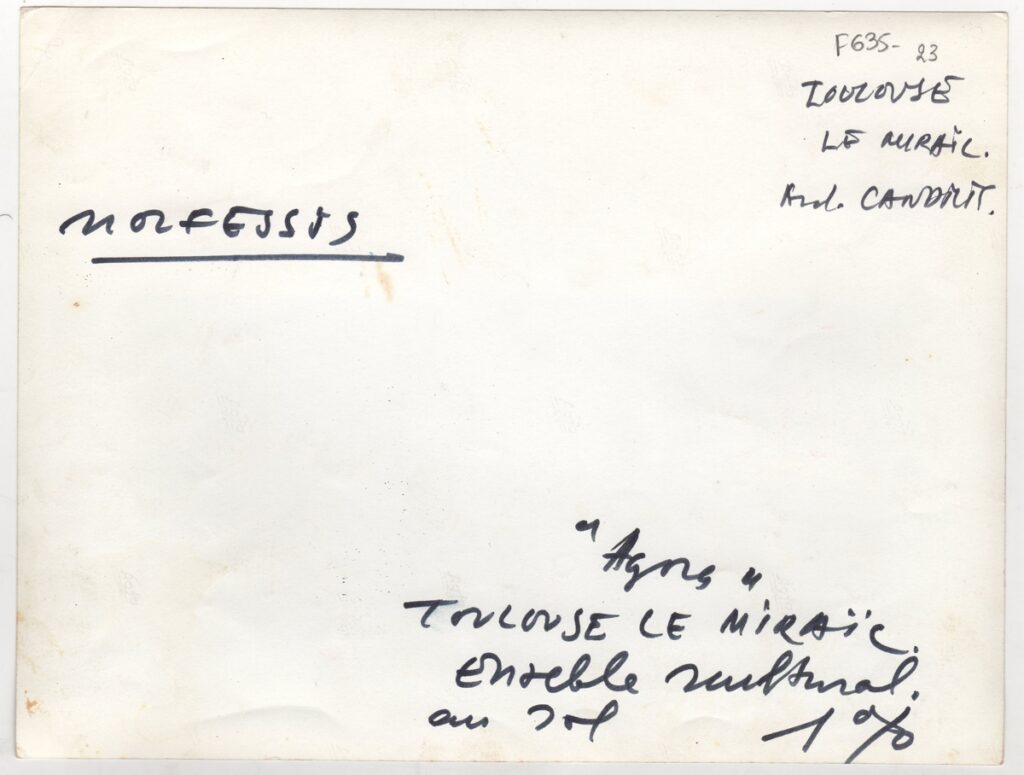 F635-23
TOULOUSE
LE MIRAÏL.
Arch. CANDILIS.
MORFESSIS
"Agora"
TOULOUSE LE MIRAÏL.
Ensemble sculptural.
au sol 1%